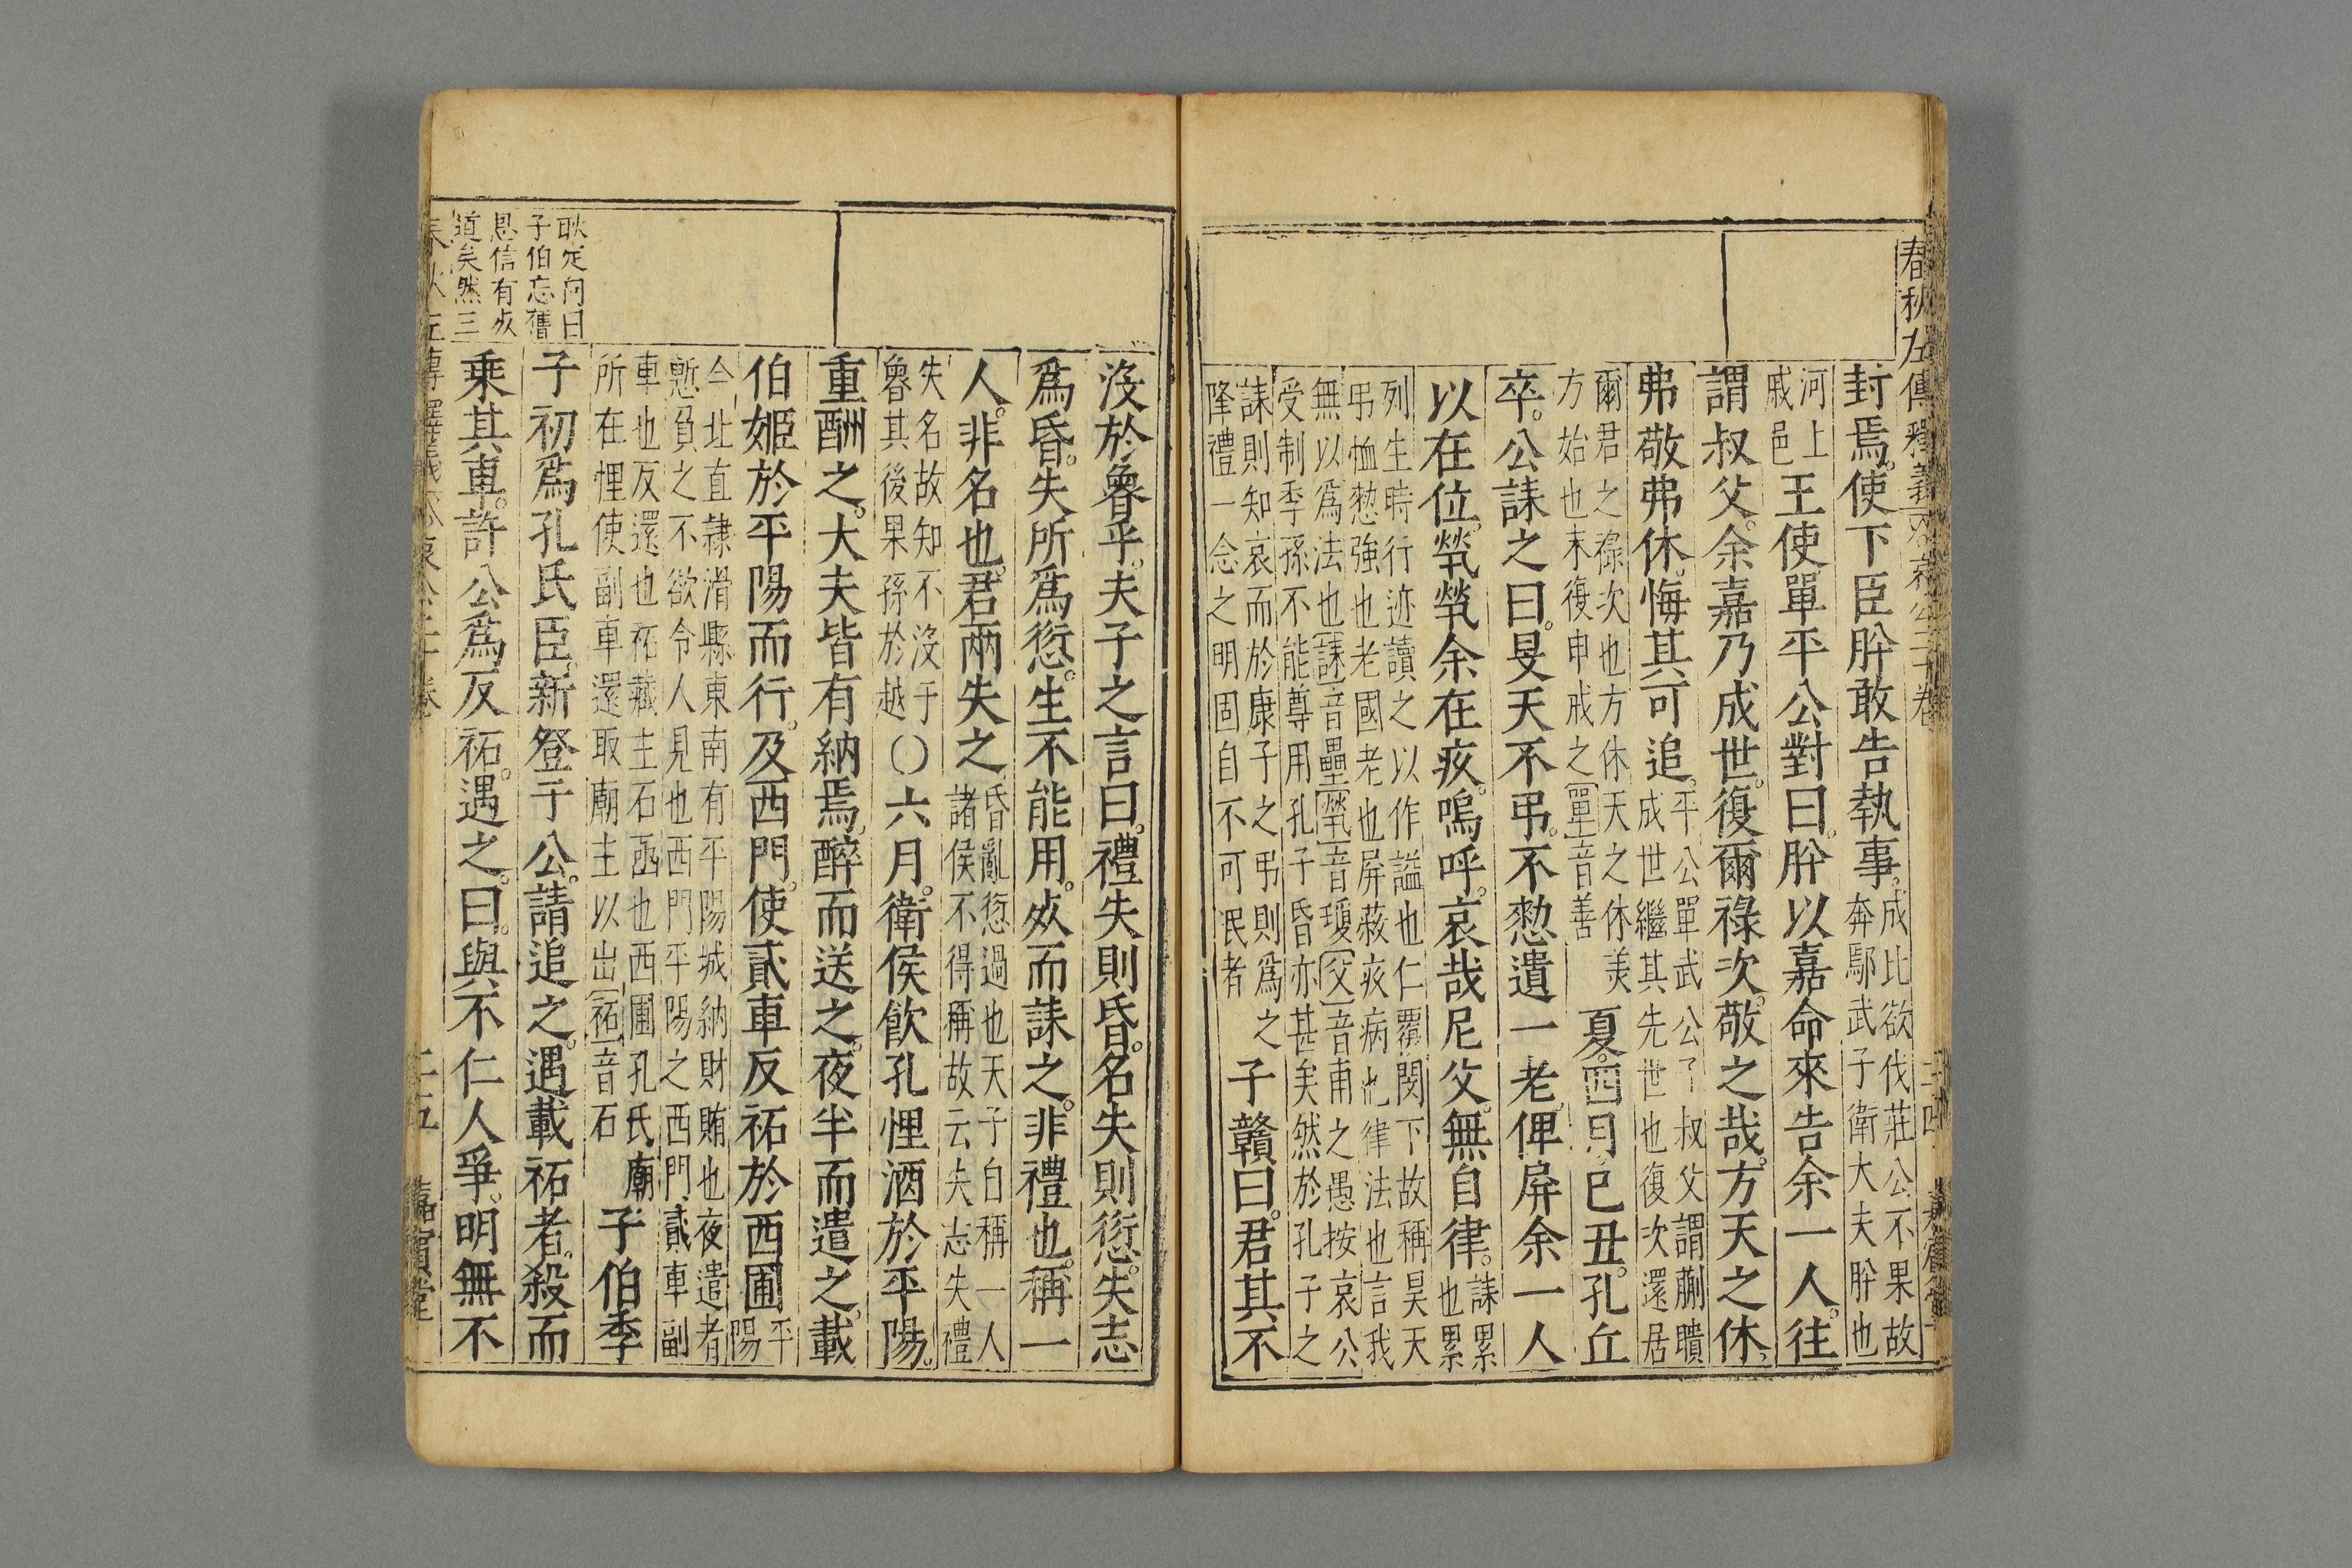 春秋左傳釋義大全哀公二十卷
封焉。使下臣肸敢告執事。成比欲伐莊公不果故
奔鄢武子衛大夫肸也
河上
戚邑
王使單平公對曰。肸以嘉命來告余一人。往
謂叔父。余嘉乃成世。復爾祿次。敬之哉。方天之休。
弗敬弗休。悔其可追。平公單武公子叔父謂蒯聵
成世繼其先世也復次還居
爾君之祿次也方休天之休美
方始也末復申戒之單音善
夏。四月。己丑。孔丘
卒。公誄之曰。旻天不弔。不憖遺一老。俾屏余一人
以在位。煢煢余在疚。嗚呼。哀哉尼父。無自律。誄累
也累
列生時行迹讀之以作謚也仁覆閔下故稱旻天
弔恤憖強也老國老也屏蔽疚病也律法也言我
無以爲法也誄音壘煢音瓊父音甫之愚按哀公
受制季孫不能尊用孔子昏亦甚矣然於孔子之
誄則知哀而於康子之弔則爲之
隆禮一念之明固自不可泯者
子贛曰。君其不
沒於魯乎。夫子之言曰。禮失則昏。名失則愆。失志
爲昏。失所爲愆。生不能用。死而誄之。非禮也。稱一
人。非名也。君兩失之。昏亂愆過也天子自稱一人
諸侯不得稱故云失志失禮
失名故知不沒于
魯其後果孫於越
〇六月。衛侯飮孔悝酒於平陽。
重酬之。大夫皆有納焉。醉而送之。夜半而遣之。載
伯姬於平陽而行。及西門。使貳車反祏於西圃。平
陽
今北直隸滑縣東南有平陽城納財賄也夜遣者
慙負之不欲令人見也西門平陽之西門貳車副
車也反還也祏藏主石函也西圃孔氏廟
所在悝使副車還取廟主以出祏音石
子伯季
子初爲孔氏臣。新登于公。請追之。遇載祏者。殺而
耿定向曰
子伯忘舊
恩信有死
道矣然三
乘其車。許公爲反祏。遇之。曰。與不仁人爭。明無不
二五